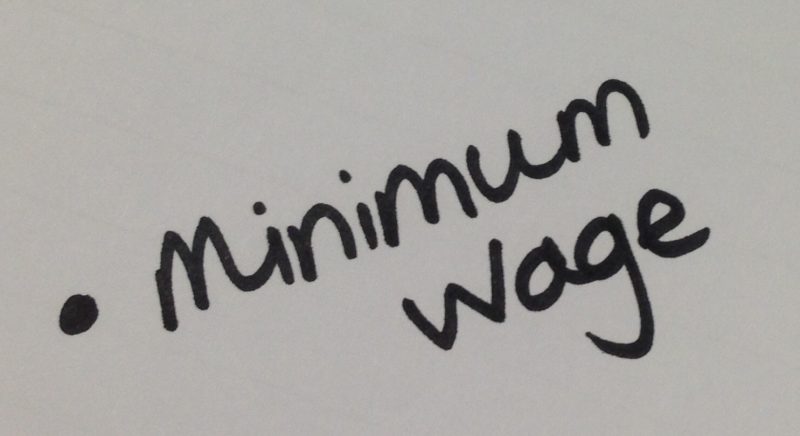 • Minimum
wage